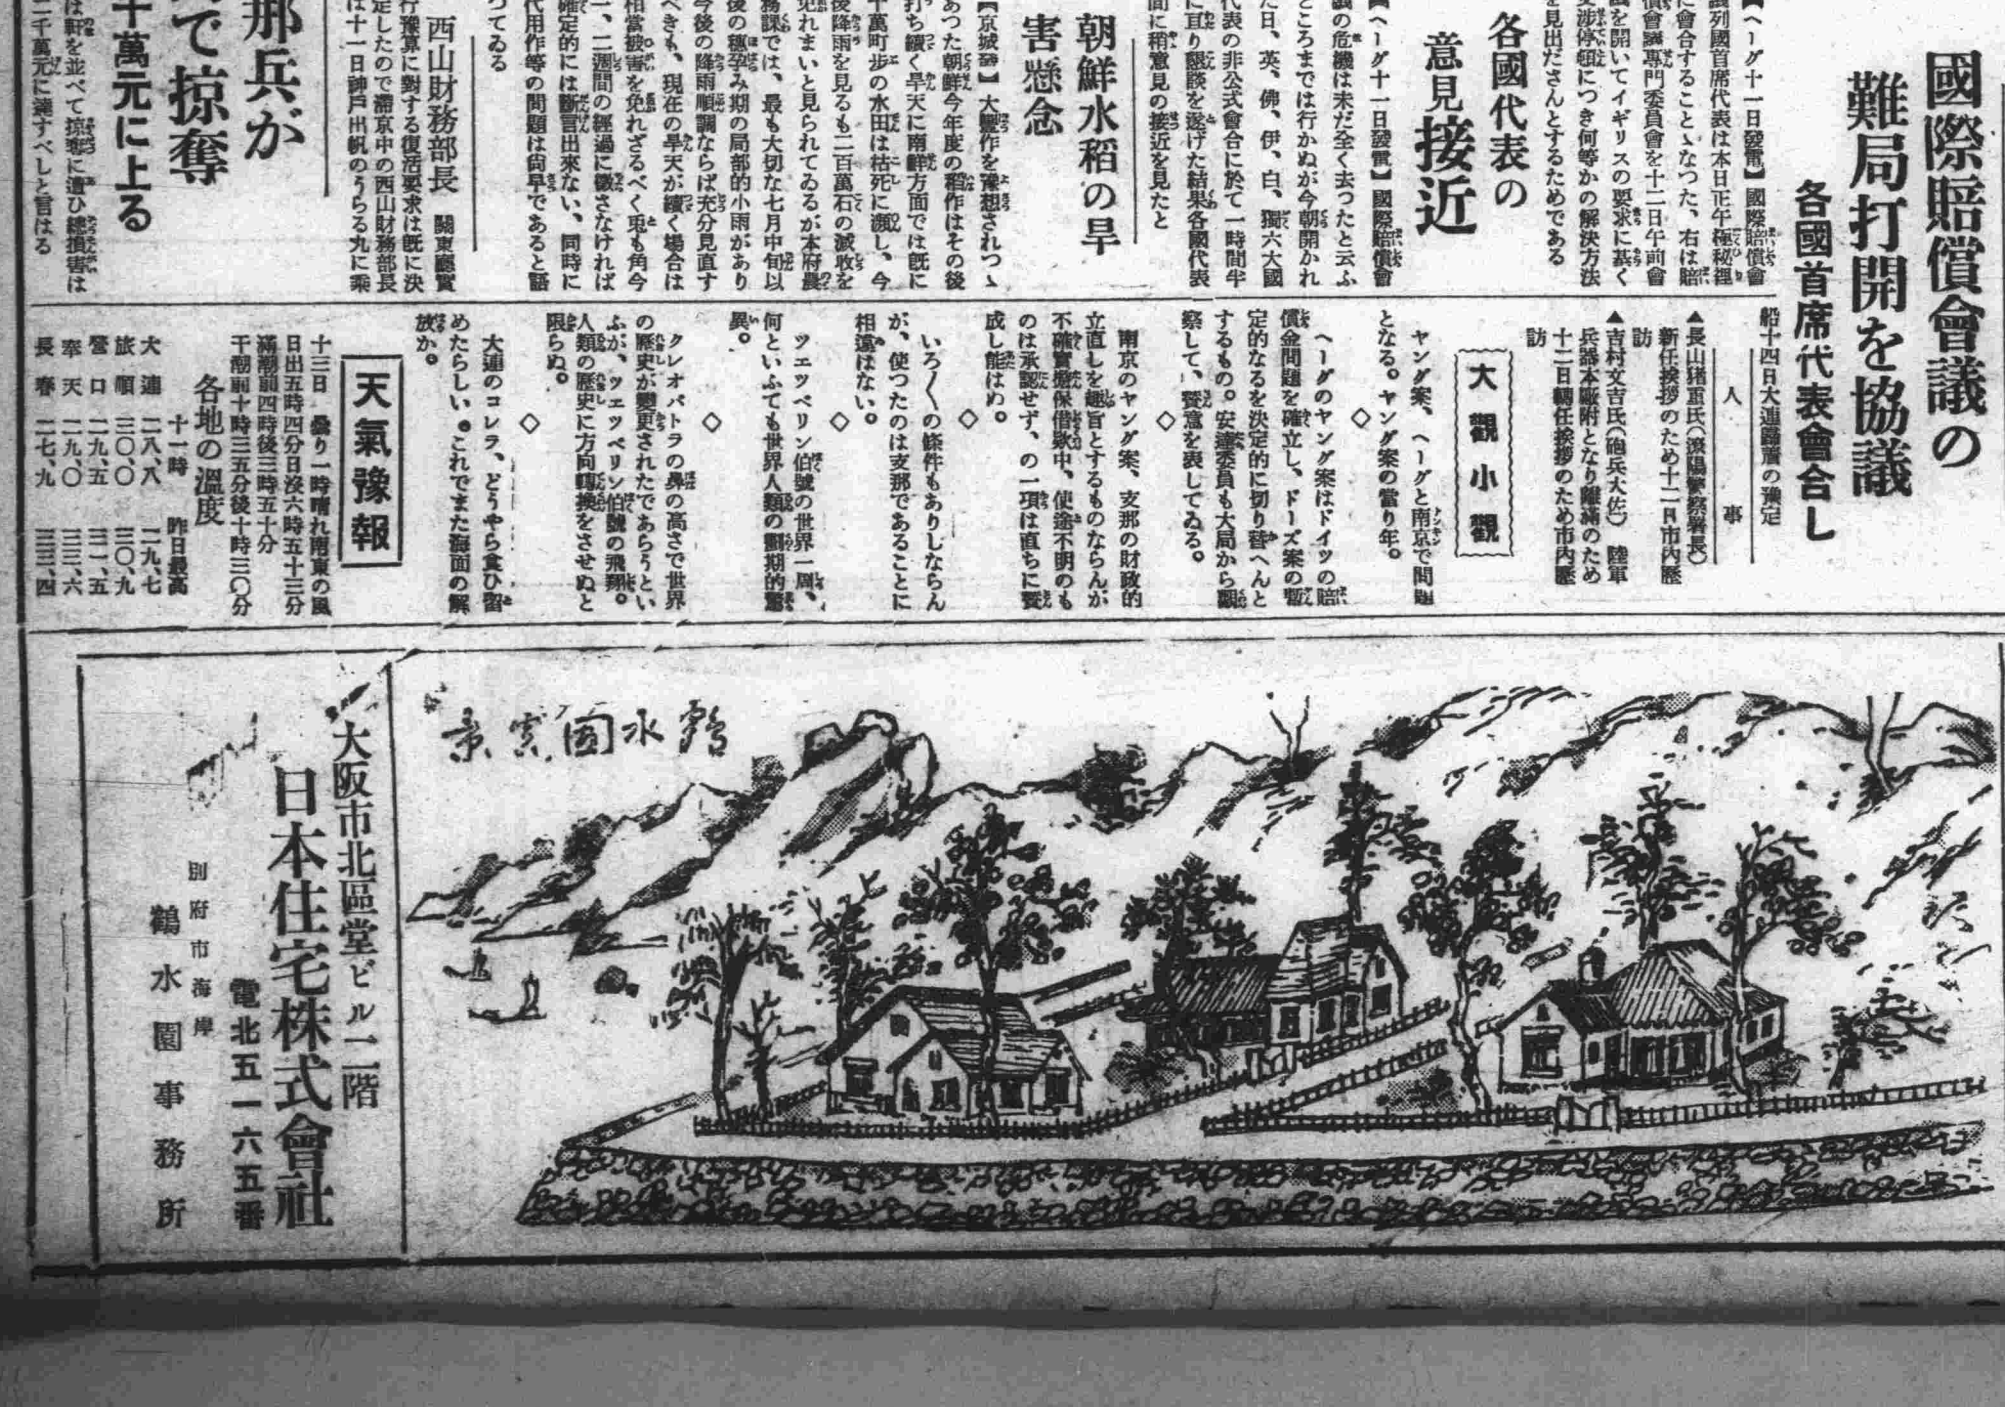 國際賠償會議の
難局打開を協議
各國首席代表會合し
【ヘーグ十一日發電】國際賠償會
議列國首席代表は本日正午極秘裡
に會合することゝなつた、右は賠
償會議專門委員會を十二日午前會
議を開いてイギリスの要求に基く
交渉停頓につき何等かの解決方法
を見出ださんとするためである
各國代表の
意見接近
【ヘーグ十一日發電】國際賠償會
議の危機は未だ全く去つたと云ふ
ところまでは行かぬが今朝開かれ
た日、英、佛、伊、白、獨六大國
代表の非公式會合に於て一時間半
に亘り懇談を遂げた結果各國代表
間に稍意見の接近を見たと
朝鮮水稻の旱
害懸念
【京城發】大豐作を豫想されつゝ
あつた朝鮮今年度の稻作はその後
打ち續く旱天に南鮮方面では既に
十萬町歩の水田は枯死に瀕し、今
後降雨を見るも二百萬石の減收を
免れまいと見られてゐるが本府農
務課では、最も大切な七月中旬以
後の穗孕み期の局部的小雨があり
今後の降雨順調ならば充分見直す
べきも、現在の旱天が續く場合は
相當被害を免れざるべく兎も角今
一、二週間の經過に徴さなければ
確定的には斷言出來ない、同時に
代用作等の問題は尚早であると語
つてゐる
西山財務部長 關東廳實
行豫算に對する復活要求は既に決
定したので滯京中の西山財務部長
は十一日神戸出帆のうらる丸に乘
那兵が
で掠奪
十萬元に上る
は軒を並べて掠奪に遭ひ總損害は
二千萬元に達すべしと言はる
船十四日大連歸着の豫定
人事
▲長山猪重氏(遼陽警察署長)
新任挨拶のため十一日市内歴
訪
▲吉村文吉氏(砲兵大佐) 陸軍
兵器本廠附となり離滿のため
十二日轉任挨拶のため市内歴
訪
大觀小觀
ヤング案、ヘーグと南京で問題
となる。ヤング案の當り年。
◇
ヘーグのヤング案はドイツの賠
償金問題を確立し、ドーズ案の暫
定的なるを決定的に切り替へんと
するもの。安達委員も大局から觀
察して、贊意を表してゐる。
◇
南京のヤング案、支那の財政的
立直しを趣旨とするものならんが
不確實擔保借款中、使途不明のも
のは承認せず、の一項は直ちに贊
成し能はぬ。
◇
いろ〱の條件もありしならん
が、使つたのは支那であることに
相違はない。
◇
ツエツペリン伯號の世界一周、
何といふても世界人類の劃期的驚
異。
◇
クレオパトラの鼻の高さで世界
の歴史が變更されたであらうとい
ふが、ツエツペリン伯號の飛翔。
人類の歴史に方向轉換をさせぬと
限らぬ。
◇
大連のコレラ、どうやら食ひ留
めたらしい。これでまた海面の解
放か。
天氣豫報
十三日 曇り一時晴れ南東の風
日出五時四分日沒六時五十三分
滿潮前四時後三時五十分
干潮前十時三五分後十時三〇分
各地の温度
十一時 昨日最高
大連 二八、八 二九、七
旅順 三〇、〇 三〇、九
營口 二九、五 三一、五
奉天 二九、〇 三三、六
長春 二七、九 三三、四
鶴水園実景
大阪市北區堂ビル二階
日本住宅株式會社
電北五一六五番
別府市海岸
鶴水園事務所